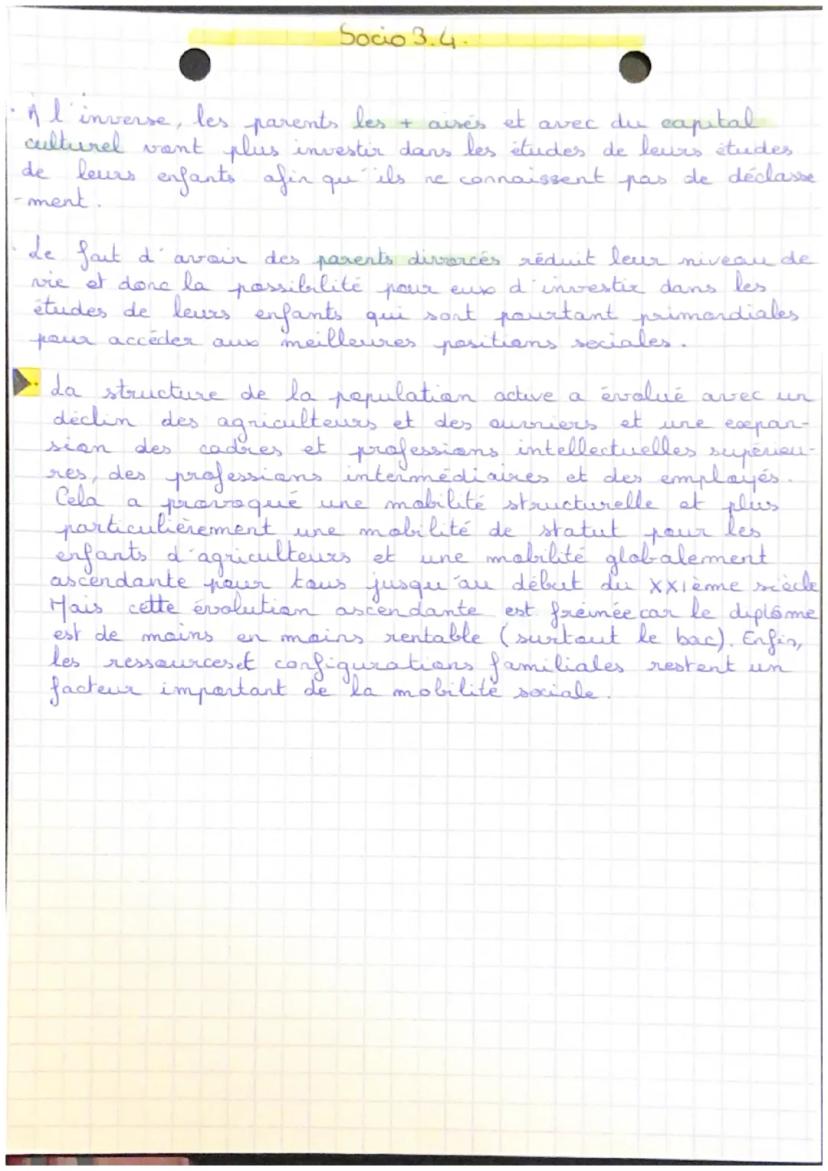 Socio 3.4.
· A l'inverse, les parents les + aisés et avec du capital
culturel vont plus investir dans les études de leurs études
de leurs enfants afin qu'ils ne connaissent pas de déclasse
-ment.
· Le fait d'avoir des parents divorcés réduit leur niveau de
vie et donc la possibilité pour eux d'investir dans les
études de leurs enfants qui sont pourtant primordiales
pour accéder aux meilleures positions sociales.
La structure de la population active a évolué avec un
déclin des agriculteurs et des ouvriers et une expan-
sion des cadres et professions intellectuelles supérieu-
res, des professions intermédiaires et des employés.
Cela a provoqué une mobilité structurelle et plus
particulièrement une mobilité de statut pour les
enfants d'agriculteurs et une mobilité globalement
ascendante pour tous jusqu'au début du XXIème siècle
Mais cette évolution ascendante est freinée car le diplôme
est de moins en moins rentable (surtout le bac). Enfin,
les ressources et configurations familiales restent un
facteur important de la mobilité sociale.